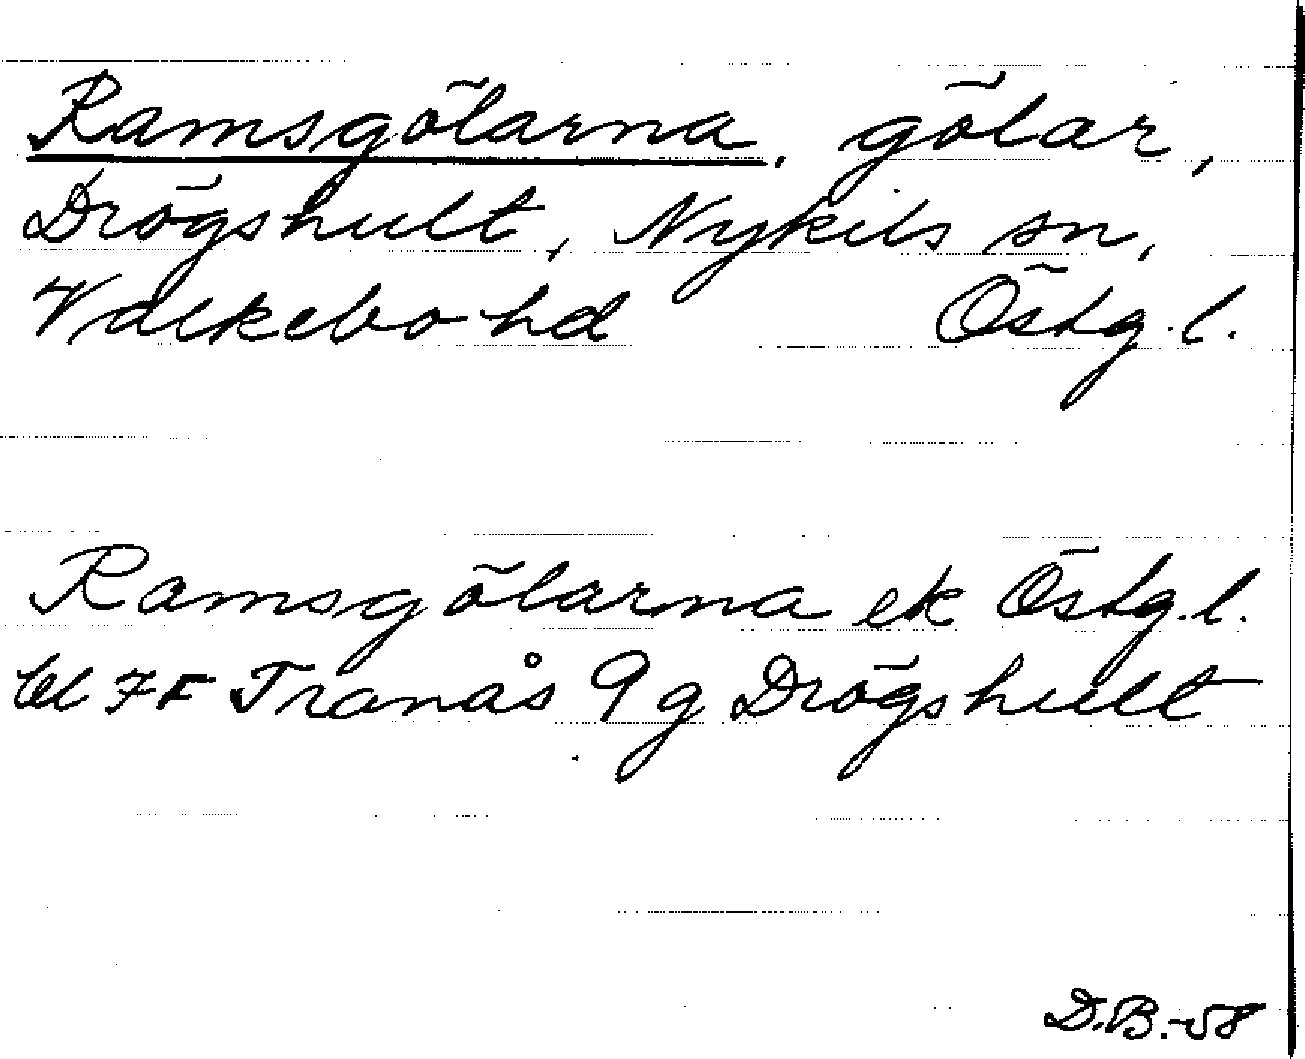 Ramsgölarna, gölar,
Drögshult, Nykils sn,
Valkebo hd Östg.l.
Ramsgölarna ek Östg.l.
bl 7F Tranås 9g Drögshult
D.B.-58